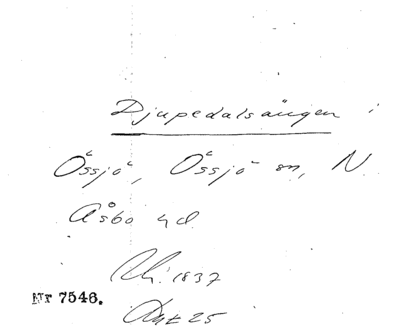 Djupedalsängen i
Össjö, Össjö sn, N
Åsbo hd
1837
25
Nr 7546.